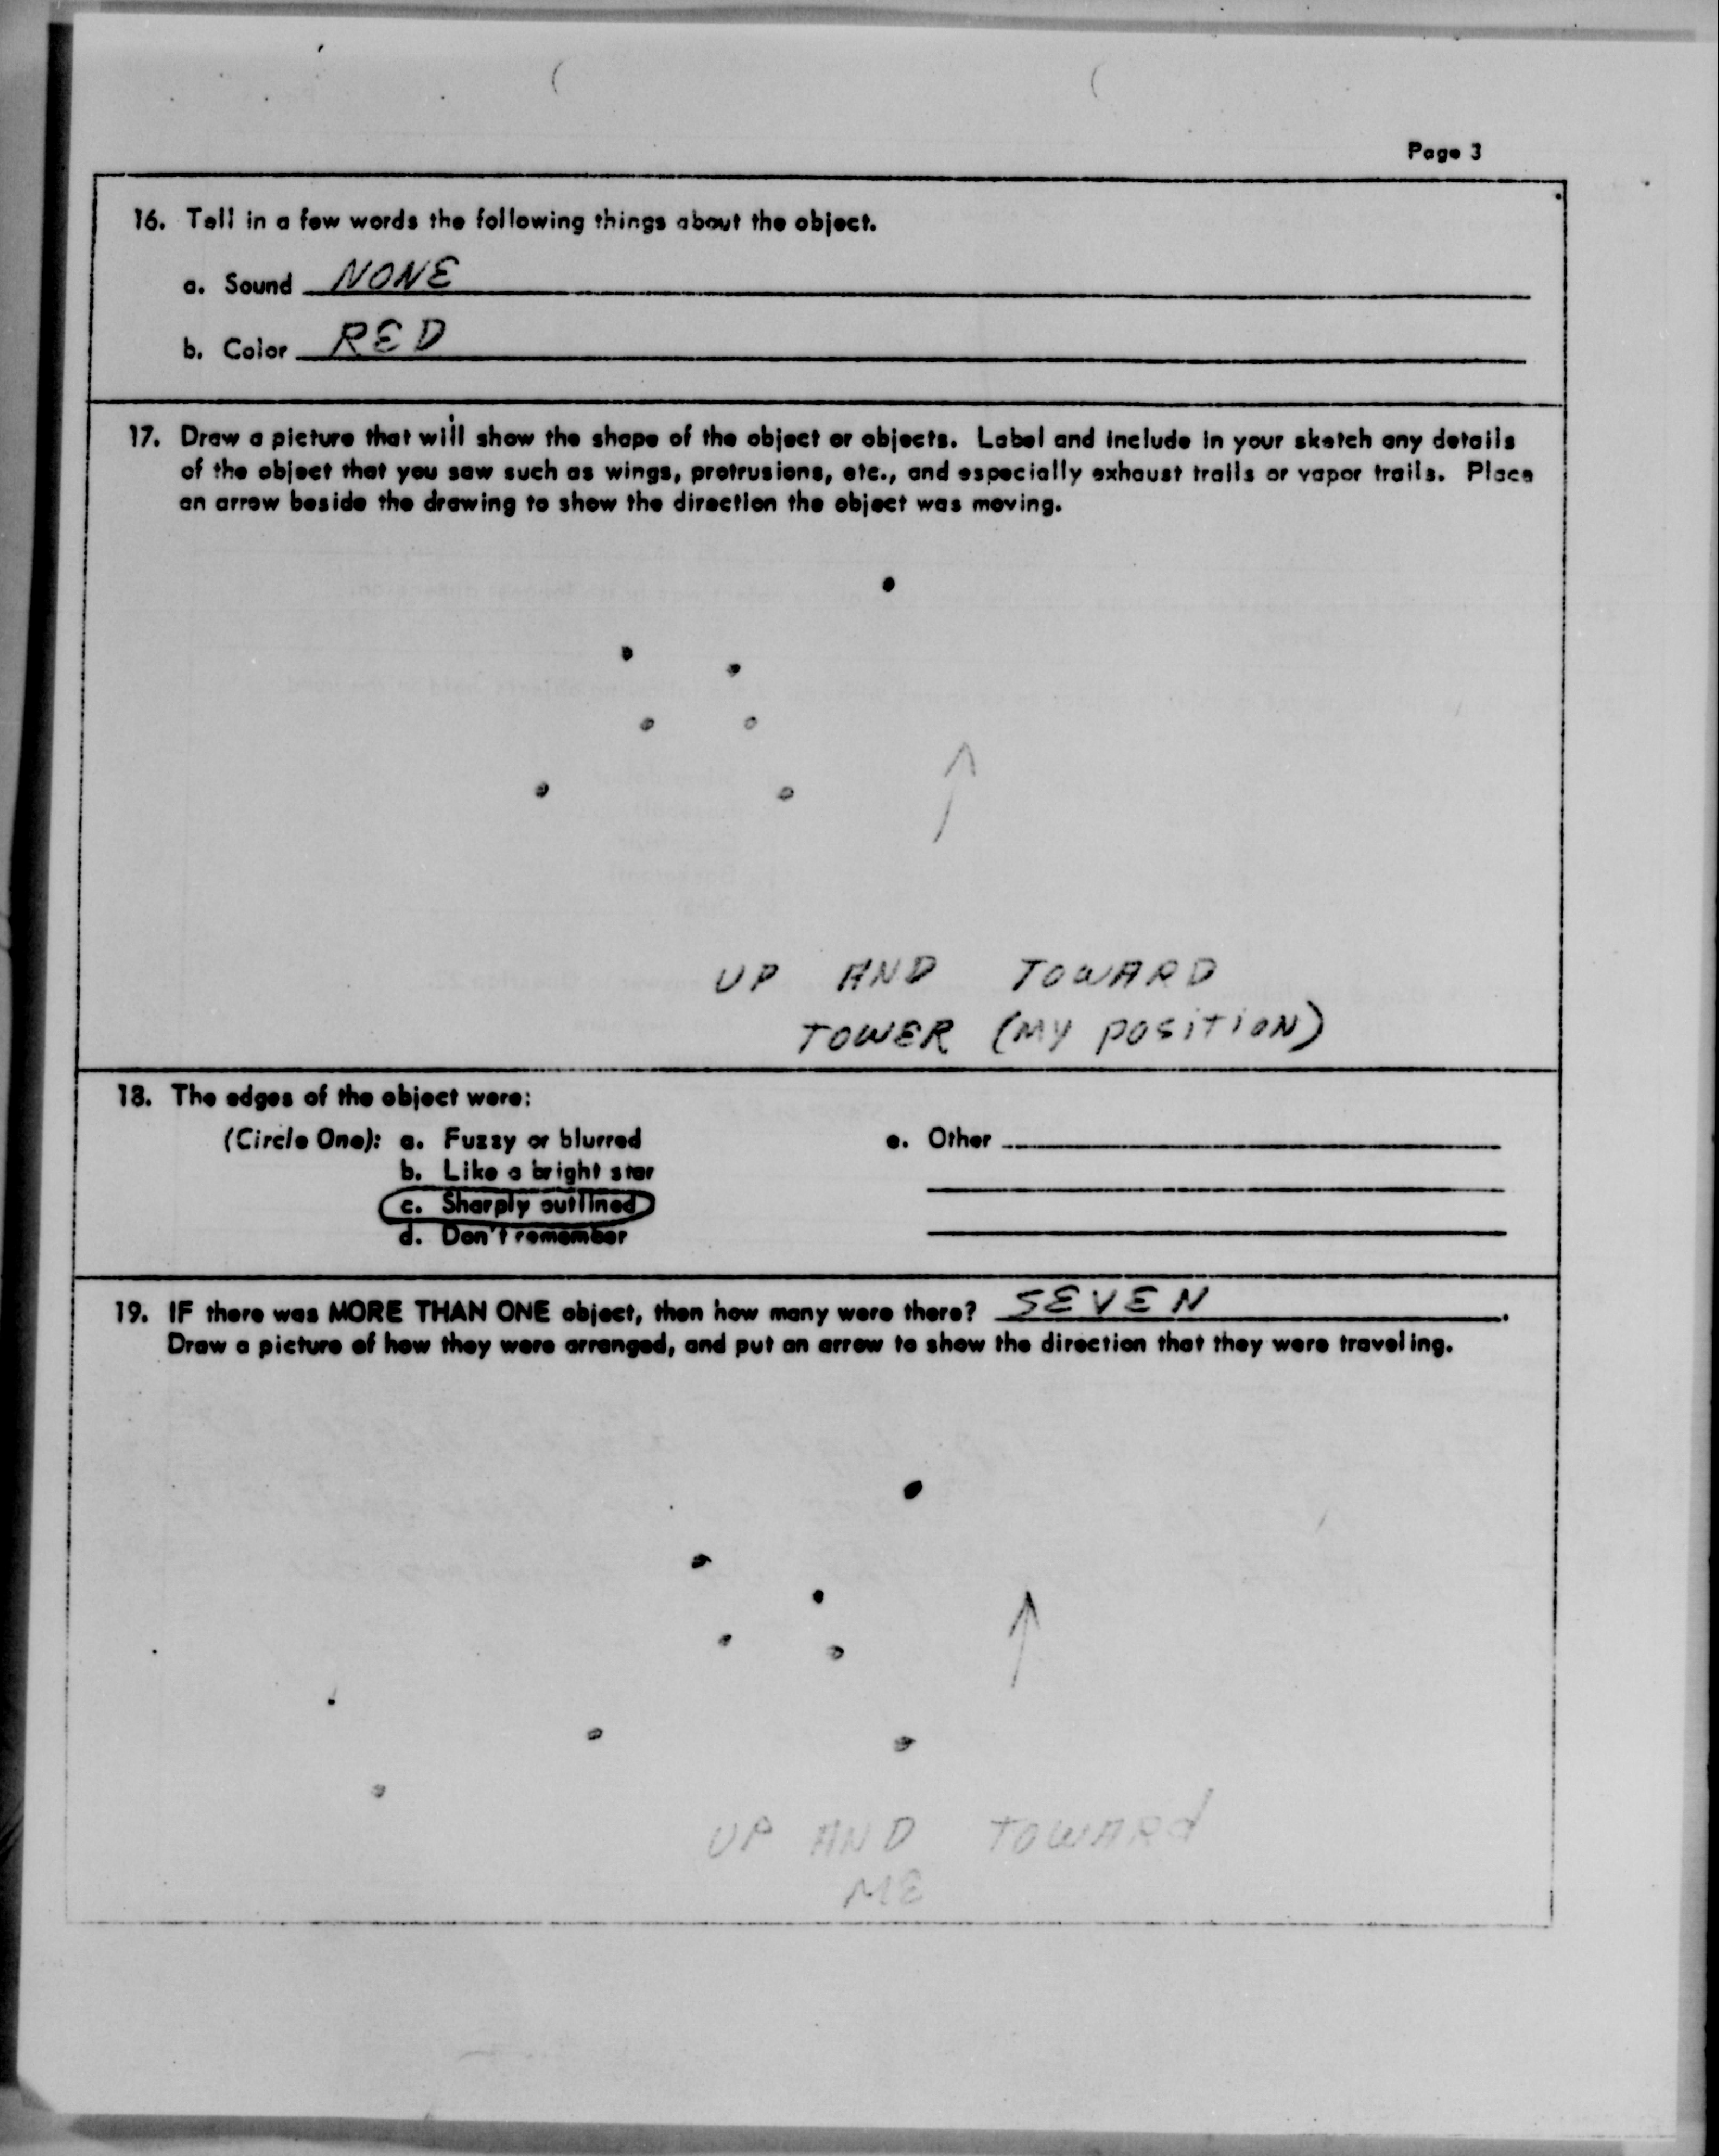 Page 3
16. Tell in a few words the following things about the object.
a. Sound NONE
b. Color RED
17. Draw a picture that will show the shape of the object or objects. Label and include in your sketch any details
of the object that you saw such as wings, protrusions, etc., and especially exhaust trails or vapor trails. Place
an arrow beside the drawing to show the direction the object was moving.
UP AND TOWARD
TOWER (MY POSITION)
18. The edges of the object were:
(Circle One): a. Fuzzy or blurred
e. Other
b. Like a bright star
c. Sharply outlined
d. Don't remember
19. IF there was MORE THAN ONE object, then how many were there? SEVEN.
Draw a picture of how they were arranged, and put an arrow to show the direction that they were traveling.
UP AND TOWARd
ME